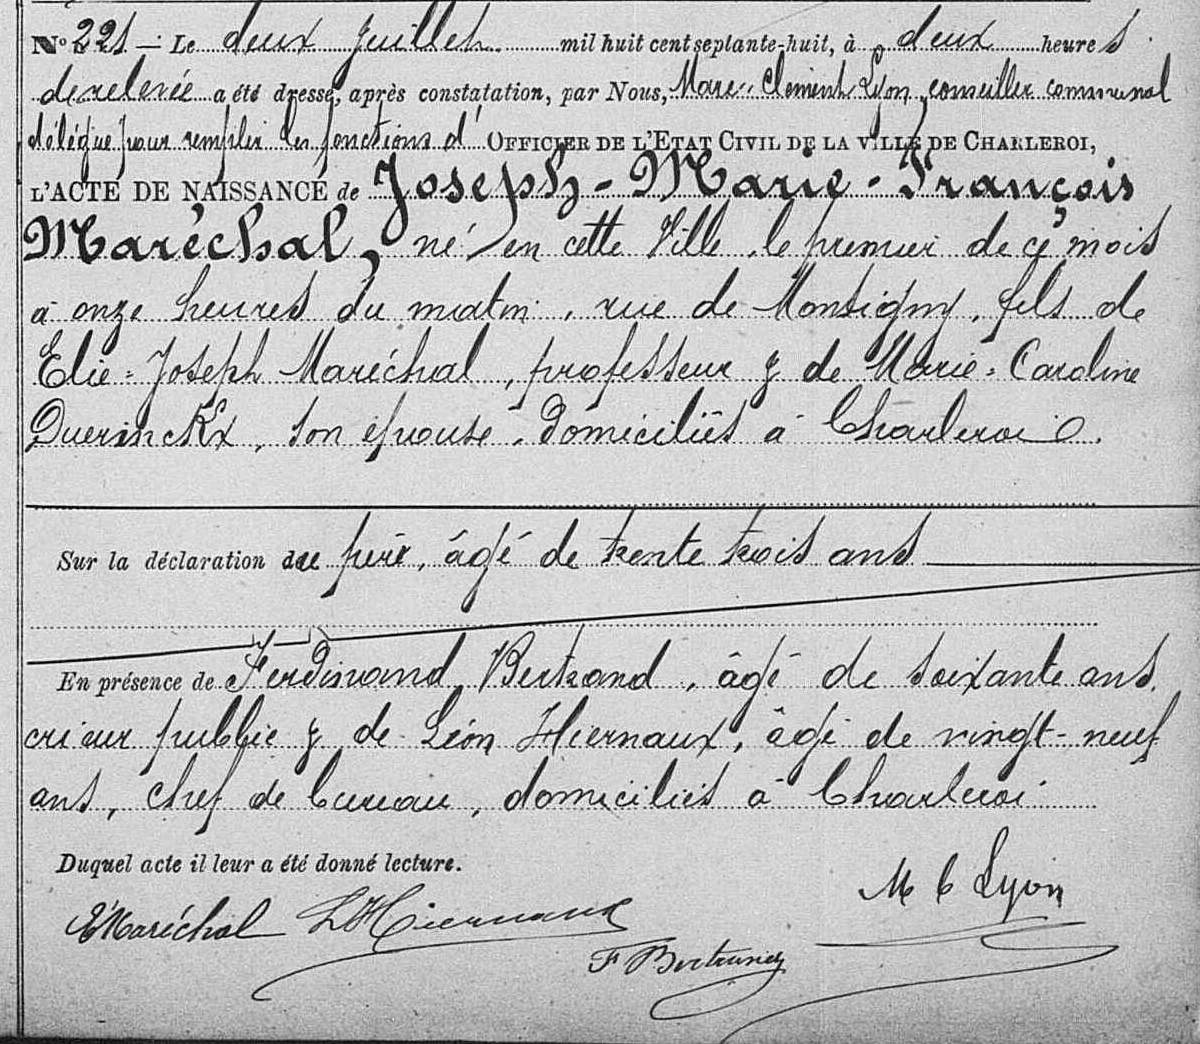 N° 221 – Le deux Juillet mil huit cent septante-huit, à deux heures
de relevée a été dressé, après constatation, par Nous, Marc-Clément Lyon, conseiller communal
délégué pour remplir les fonctions d' OFFICIER DE L'ETAT CIVIL DE LA VILLE DE CHARLEROI,
L'ACTE DE NAISSANCE de Joseph-Marie-François
Maréchal, né en cette Ville, le premier de ce mois
à onze heures du matin, rue de Montigny, fils de
Elie-Joseph Maréchal, professeur & de Marie-Caroline
Querinckx, son épouse, domiciliés à Charleroi.
Sur la déclaration du père, âgé de trente trois ans
En présence de Ferdinand Bertrand, âgé de soixante ans,
crieur public & de Léon Hiernaux, âgé de vingt-neuf
ans, chef de bureau, domiciliés à Charleroi
Duquel acte il leur a été donné lecture.
E Maréchal L Hiernaux M C Lyon
F Bertrand